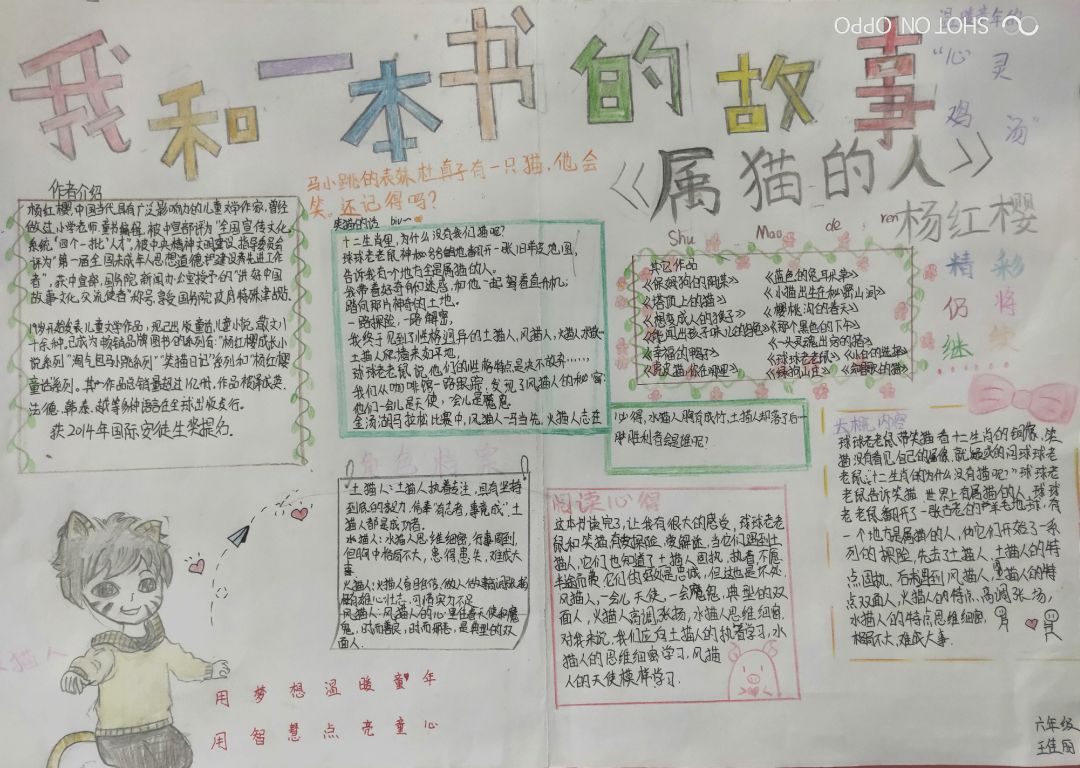 SHOT ON OPPO
我和一本书的故事
温暖童年的
“心灵
鸡汤”
《属猫的人》
Shu Mao de ren
杨红樱
精彩将
仍继续
作者介绍
杨红樱,中国当代具有广泛影响力的儿童文学作家,曾经
做过小学老师,童书编辑,被中宣部评为“全国宣传文化
系统‘四个一批’人才”,被中央精神文明建设指导委员会
评为“第一届全国未成年人思想道德建设先进工作
者”,获中宣部,国务院新闻办公室授予的“讲好中国
故事文化交流使者”称号,享受国务院政府特殊津贴.
19岁开始发表儿童文学作品,现已出版童话,儿童小说,散文八
十余种,已成为畅销品牌图书的系列有:“杨红樱成长小
说系列”“淘气包马小跳系列”“笑猫日记”系列和“杨红樱
童话系列。其
法,德,韩,泰,越等多种语言在全球出版发行。
获2014年国际安徒生奖提名.
马小跳的表妹杜真子有一只猫,他会
笑。还记得吗?
笑猫的话 biu~
十二生肖里,为什么没有我们猫呢?
球球老老鼠神秘兮兮地翻开一张旧羊皮地图,
告诉我有个地方全是属猫的人。
我带着好奇和迷惑,和他一起驾着直升机,
踏向那片神奇的土地。
一路探险,一路解密,
我终于见到了性格迥异的土猫人,风猫人,火猫人,水猫人
土猫人爬墙来如平地,
球球老老鼠说他们的性格特点是决不放弃……
我们从咖啡馆一路跟踪,发现了风猫人的秘密:
他们一会儿是天使,一会儿是魔鬼
金汤湖马拉松比赛中,风猫人一马当先,火猫人志在
必得,水猫人胸有成竹,土猫人却落了后……
胜利者会是谁呢?
其它作品
《保姆狗的阴谋》
《塔顶上的猫》
《想变成人的猴子》
《能闻出孩子味儿的乌龟》
《幸福的鸭子》
《虎皮猫,你在哪里》
《蓝色的兔耳朵草》
《小猫出生在秘密山洞》
《樱桃沟的春天》
《那个黑色的下午》
《一头灵魂出窍的猪》
《球球老老鼠》
《绿狗山庄》
《小白的选择》
《会唱歌的猫》
角色档案
“土猫人:土猫人执着专注,具有坚持
到底的毅力,信奉“有志者,事竟成”,土
猫人都是成功者.
水猫人:水猫人思维细密,行事周到,
但胸中格局不大,患得患失,难成大
事
火猫人:火猫人盲目自信,他人的高调张扬
雄心壮志,可惜实力不足
风猫人:风猫人的心里住着天使和魔
鬼,时而善良,时而邪恶,是典型的双
面人.
阅读心得
这本书读完了,让我有很大的感受,球球老老
鼠和笑猫有爱探险,爱解谜,当它们遇到土
猫人,它们也知道了土猫人固执,执着,不愿
半途而废,它们的好处是忠诚,但这也是坏处.
风猫人,一会儿天使,一会魔鬼,典型的双
面人,火猫人高调张扬,水猫人思维细密,
对我来说,我们应向土猫人的执着学习,水
猫人的思维细密学习,风猫
人的天使模样学习.
大概内容
球球老老鼠带笑猫看十二生肖的铜像,笑
猫没有看见自己的铜像,就疑惑的问球球老
老鼠:“十二生肖的为什么没有猫呢?”球球老
老鼠告诉笑猫,世界上有属猫的人,球球
老老鼠翻开了一张古老的羊皮地球,有
一个地方是属猫的人,他它们开始了一系
列的探险,先去了土猫人,土猫人的特
点固执,后来遇到风猫人,风猫人的特
点双面人,火猫人的特点,高调张扬,
水猫人的特点思维细密,
格局不大,难成大事.
猫人
用梦想温暖童年
用智慧点亮童心
六年级
王佳丽